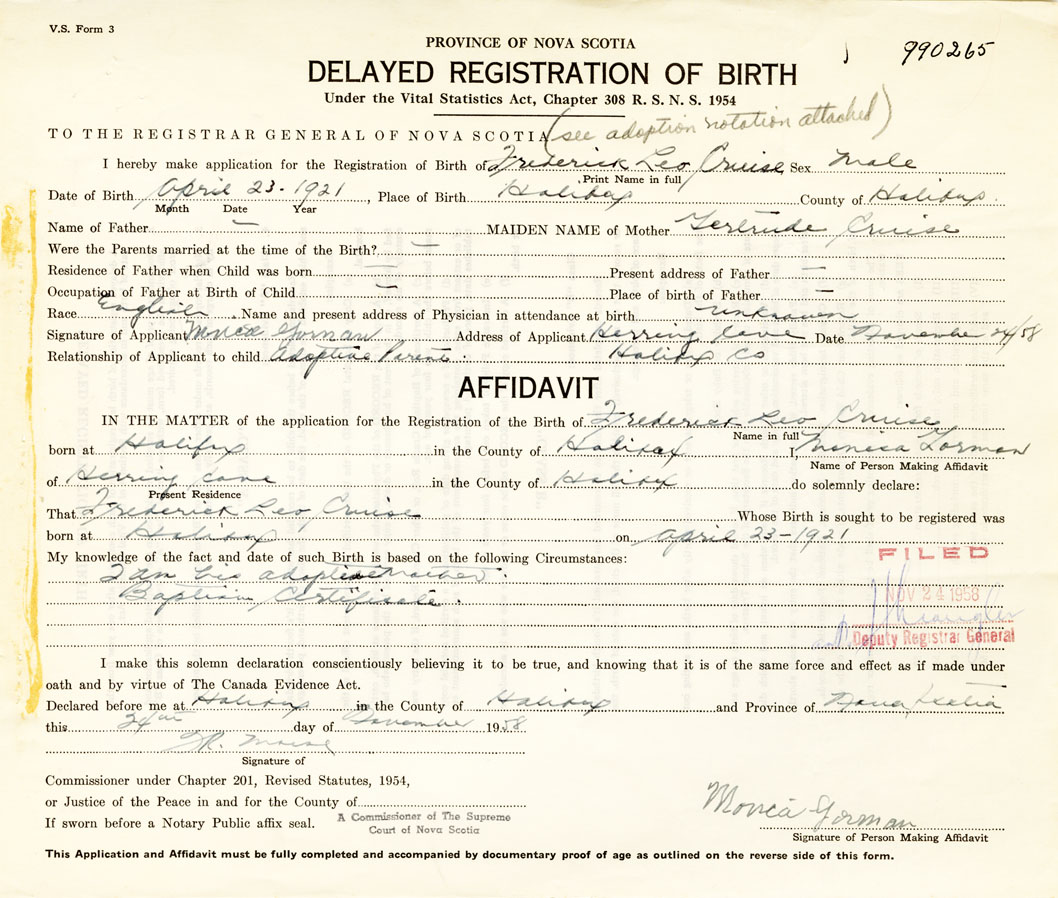 V.S. Form 3
990265
PROVINCE OF NOVA SCOTIA
DELAYED REGISTRATION OF BIRTH
Under the Vital Statistics Act, Chapter 308 R. S. N. S. 1954
TO THE REGISTRAR GENERAL OF NOVA SCOTIA (see adoption notation attached)
I hereby make application for the Registration of Birth of Frederick Leo Cruise Sex Male
Print Name in full
Date of Birth April 23 - 1921, Place of Birth Halifax County of Halifax.
Month Date Year
Name of Father — MAIDEN NAME of Mother Gertrude Cruise
Were the Parents married at the time of the Birth? —
Residence of Father when Child was born — Present address of Father —
Occupation of Father at Birth of Child — Place of birth of Father —
Race English. Name and present address of Physician in attendance at birth unknown
Signature of Applicant Monica Gorman Address of Applicant Herring Cove Date November 24/58
Relationship of Applicant to child Adoptive Parent. Halifax Co
AFFIDAVIT
IN THE MATTER of the application for the Registration of the Birth of Frederick Leo Cruise
Name in full
born at Halifax in the County of Halifax I, Monica Gorman
Name of Person Making Affidavit
of Herring Cove in the County of Halifax do solemnly declare:
Present Residence
That Frederick Leo Cruise Whose Birth is sought to be registered was
born at Halifax on April 23 - 1921
My knowledge of the fact and date of such Birth is based on the following Circumstances:
FILED
I am his adoptive Mother.
Baptism Certificate.
NOV 24 1958
Deputy Registrar General
I make this solemn declaration conscientiously believing it to be true, and knowing that it is of the same force and effect as if made under
oath and by virtue of The Canada Evidence Act.
Declared before me at Halifax in the County of Halifax and Province of Nova Scotia
this 24th day of November 1958
Signature of
Commissioner under Chapter 201, Revised Statutes, 1954,
or Justice of the Peace in and for the County of
If sworn before a Notary Public affix seal.
A Commissioner of The Supreme
Court of Nova Scotia
Monica Gorman
Signature of Person Making Affidavit
This Application and Affidavit must be fully completed and accompanied by documentary proof of age as outlined on the reverse side of this form.